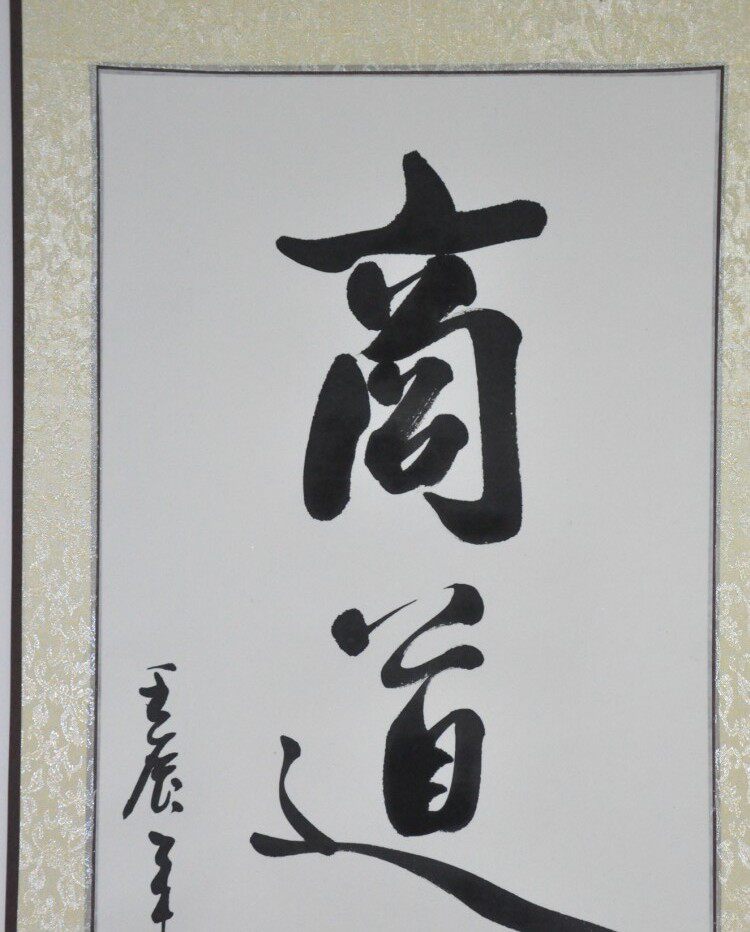 商道
壬辰年